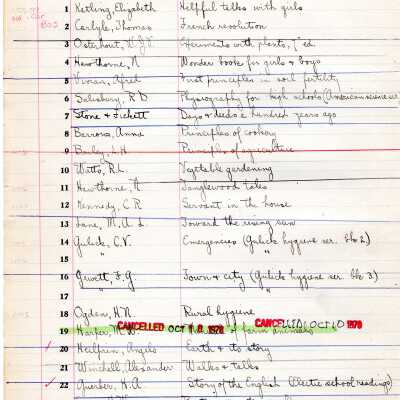 1 Ketling, Elizabeth Helpful talks with girls
2 Carlyle, Thomas French revolution
3 Osterhout, W.J.V. Experiments with plants, ed
4 Hawthorne, N Wonder book for girls & boys
5 Vivian, Alfred First principles in soil fertility
6 Salisbury, R D Physiography for high schools (American science ser
7 Stone & Fickett Days & deeds a hundred years ago
8 Barrows, Anna Principles of cookery
9 Bailey, L H Principles of agriculture
10 Watts, R.L. Vegetable gardening
11 Hawthorne, N Tanglewood tales
12 Kennedy, C R Servant in the house
13 Lane, M. A. L. Toward the rising sun
14 Gulick, C.V. Emergencies (Gulick hygiene ser. bk 2)
15 " "
16 Jewett, F.G Town & city (Gulick hygiene ser. bk 3.)
17 " "
18 Ogden, H N Rural hygiene
19 CANCELLED OCT 1970 farm animals CANCELLED OCT 1970
20 Heilprin, Angelo Earth & its story
21 Winchell, Alexander Walks & talks
22 Guerber, H.A. Story of the English (Eclectic school readings)